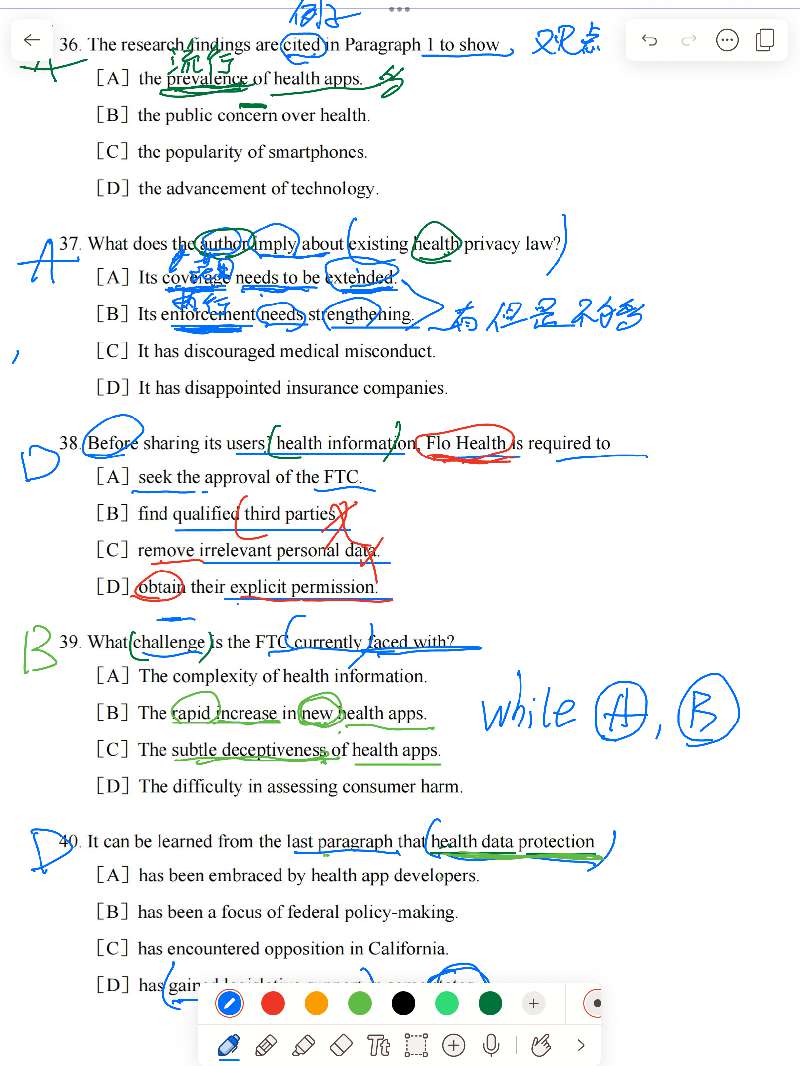 例子
36. The research findings are cited in Paragraph 1 to show 观点
A 流行
[A] the prevalence of health apps. 多
[B] the public concern over health.
[C] the popularity of smartphones.
[D] the advancement of technology.
37. What does the author imply about existing health privacy law?
A
[A] Its coverage needs to be extended.
执行
[B] Its enforcement needs strengthening. 有但是不够
[C] It has discouraged medical misconduct.
[D] It has disappointed insurance companies.
38. Before sharing its users' health information, Flo Health is required to
D
[A] seek the approval of the FTC.
[B] find qualified third parties.
[C] remove irrelevant personal data.
[D] obtain their explicit permission.
B 39. What challenge is the FTC currently faced with?
[A] The complexity of health information.
[B] The rapid increase in new health apps. while A, B
[C] The subtle deceptiveness of health apps.
[D] The difficulty in assessing consumer harm.
D 40. It can be learned from the last paragraph that health data protection
[A] has been embraced by health app developers.
[B] has been a focus of federal policy-making.
[C] has encountered opposition in California.
[D] has gained
Tt